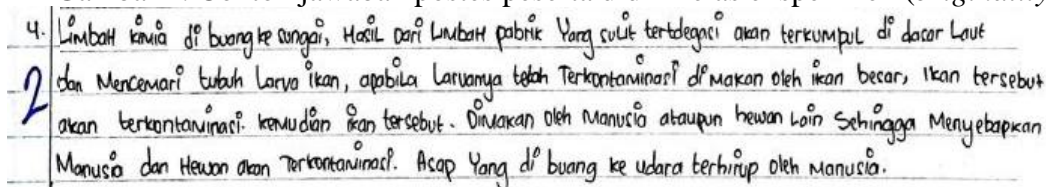 4. Limbah kimia di buang ke sungai, Hasil Dari Limbah pabrik Yang sulit tertdegnsi akan terkumpul di dasar Laut
2 dan Mencemari tubuh Larva ikan, apabila Larvanya telah Terkontaminasi di Makan oleh ikan besar, Ikan tersebut
akan berkontaminasi. kemudian ikan tersebut. Dimakan Oleh Manusia ataupun hewan Lain Sehingga Menyebapkan
Manusia dan Hewan akan Terkontaminasi. Asap Yang di buang ke udara terhirup oleh Manusia.